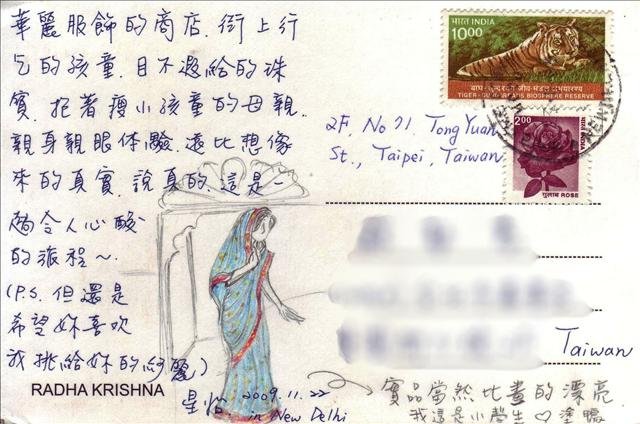 華麗服飾的商店、街上行
乞的孩童、目不遐給的珠
寶、抱著瘦小孩童的母親.
親身親眼体驗.遠比想像
來的真實、說真的、這是一
趟令人心酸
的旅程～.
(P.S. 但還是
希望妳喜欢
我挑給妳的紗麗)
RADHA KRISHNA
星怡 2009.11.22
in New Delhi
भारत INDIA
10.00
बाघ-सुन्दरबन जीव-मंडल अभयारण्य
TIGER-SUNDERBANS BIOSPHERE RESERVE
2.00
भारत INDIA
गुलाब ROSE
2F, No 21, Tong Yuan
St., Taipei, Taiwan
Taiwan
實品當然比畫的漂亮
我這是小學生♡塗鴨